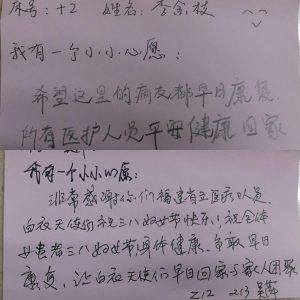 床号：+2 姓名：李金枝
我有一个小小心愿：
希望这里的病友都早日康复.
所有医护人员平安健康回家
我有一个小小的心愿：
非常感谢你们福建省立医院医护人员
白衣天使们祝三八妇女节快乐！祝全体
女患者三八妇女节身体健康、争取早日
康复，让白衣天使们早日回家与家人团聚
Z12 213